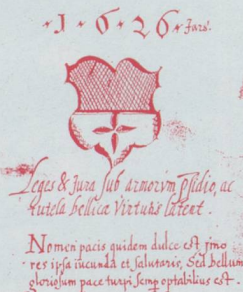 · 1 · 6 · 2 · 6 · Jars.
Leges & Jura sub armorum psidio, ac
tutela bellicæ virtutis latent.
Nomen pacis quidem dulce est, jmo
res ipsa iucunda et salutaris, Sed bellum
gloriosum pace turpi semp optabilius est.